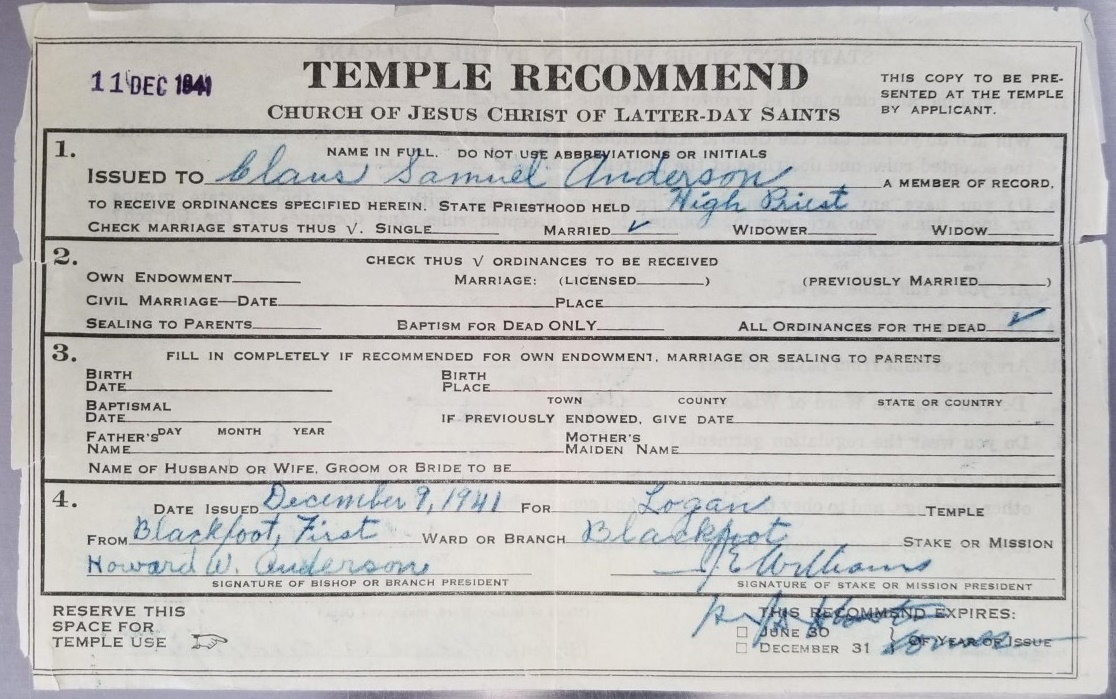 11 DEC 1941
TEMPLE RECOMMEND
CHURCH OF JESUS CHRIST OF LATTER-DAY SAINTS
THIS COPY TO BE PRE-
SENTED AT THE TEMPLE
BY APPLICANT.
1. NAME IN FULL. DO NOT USE ABBREVIATIONS OR INITIALS
ISSUED TO Claus Samuel Anderson A MEMBER OF RECORD,
TO RECEIVE ORDINANCES SPECIFIED HEREIN. STATE PRIESTHOOD HELD High Priest
CHECK MARRIAGE STATUS THUS √. SINGLE MARRIED ✓ WIDOWER WIDOW
2. CHECK THUS √ ORDINANCES TO BE RECEIVED
OWN ENDOWMENT MARRIAGE: (LICENSED ) (PREVIOUSLY MARRIED )
CIVIL MARRIAGE—DATE PLACE
SEALING TO PARENTS BAPTISM FOR DEAD ONLY ALL ORDINANCES FOR THE DEAD ✓
3. FILL IN COMPLETELY IF RECOMMENDED FOR OWN ENDOWMENT, MARRIAGE OR SEALING TO PARENTS
BIRTH DATE BIRTH PLACE
TOWN COUNTY STATE OR COUNTRY
BAPTISMAL DATE IF PREVIOUSLY ENDOWED, GIVE DATE
DAY MONTH YEAR
FATHER'S NAME MOTHER'S MAIDEN NAME
NAME OF HUSBAND OR WIFE, GROOM OR BRIDE TO BE
4. DATE ISSUED December 9, 1941 FOR Logan TEMPLE
FROM Blackfoot, First WARD OR BRANCH Blackfoot STAKE OR MISSION
Howard W. Anderson J E Williams
SIGNATURE OF BISHOP OR BRANCH PRESIDENT SIGNATURE OF STAKE OR MISSION PRESIDENT
RESERVE THIS
SPACE FOR
TEMPLE USE
THIS RECOMMEND EXPIRES:
☐ JUNE 30
☐ DECEMBER 31 } OF YEAR OF ISSUE